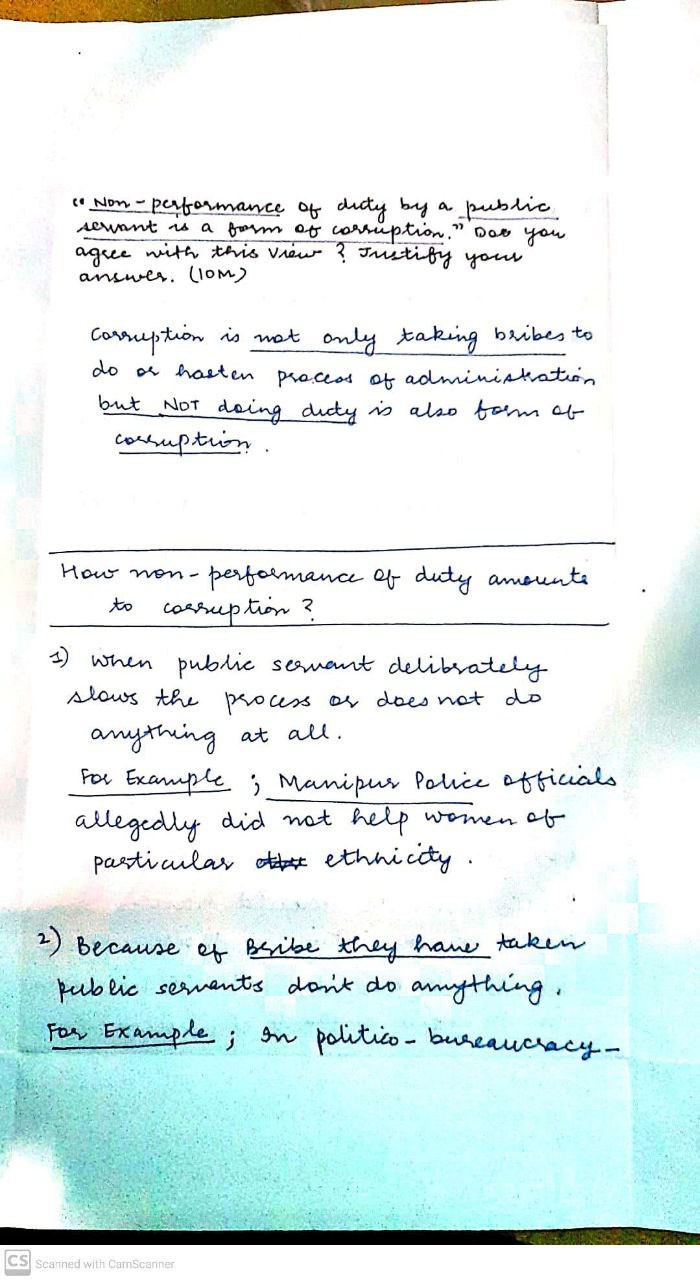 "Non-performance of duty by a public
servant is a form of corruption." Doo you
agree with this view? Justify your
answer. (10M)
Corruption is not only taking bribes to
do or hasten process of administration
but NOT doing duty is also form of
corruption.
How non-performance of duty amounts
to corruption?
1) When public servant deliberately
slows the process or does not do
anything at all.
For Example ; Manipur Police officials
allegedly did not help women of
particular ethnicity.
2) Because of Bribe they have taken
public servants don't do anything.
For Example ; In politico-bureaucracy-
CS Scanned with CamScanner